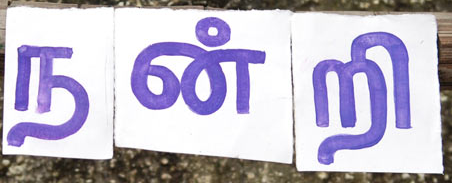 நன்றி